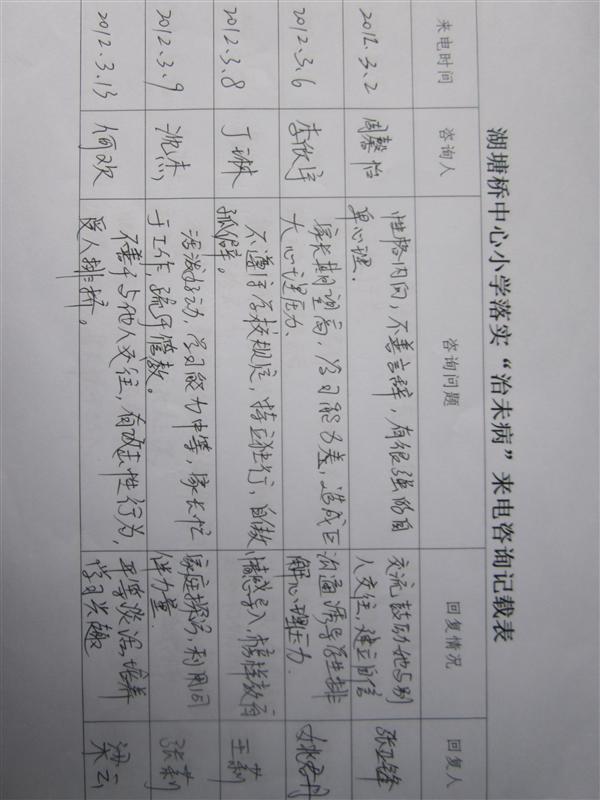 湖塘桥中心小学落实“治未病”来电咨询记载表
来电时间 咨询人 咨询问题 回复情况 回复人
2012.3.2 周馨怡 性格内向，不善言辞，有很强的自
卑心理. 交流鼓励她与别
人交往，建立自信 张卫锋
2012.3.6 李欣宇 家长期望高，学习能力差，造成巨
大心理压力、 沟通 诱导学生排
解心理压力.
2012.3.8 丁琳 不遵守学校规定，特立独行，自傲
孤僻。 情感导入 榜样教育 王莉
2012.3.9 沈杰 活泼好动，学习能力中等，家长忙
于工作，疏于管教。 家庭探访，利用同
伴力量. 张莉
2012.3.13 何欢 不善于与他人交往，有攻击性行为，
受人排挤。 平等谈话，培养
学习兴趣 梁云